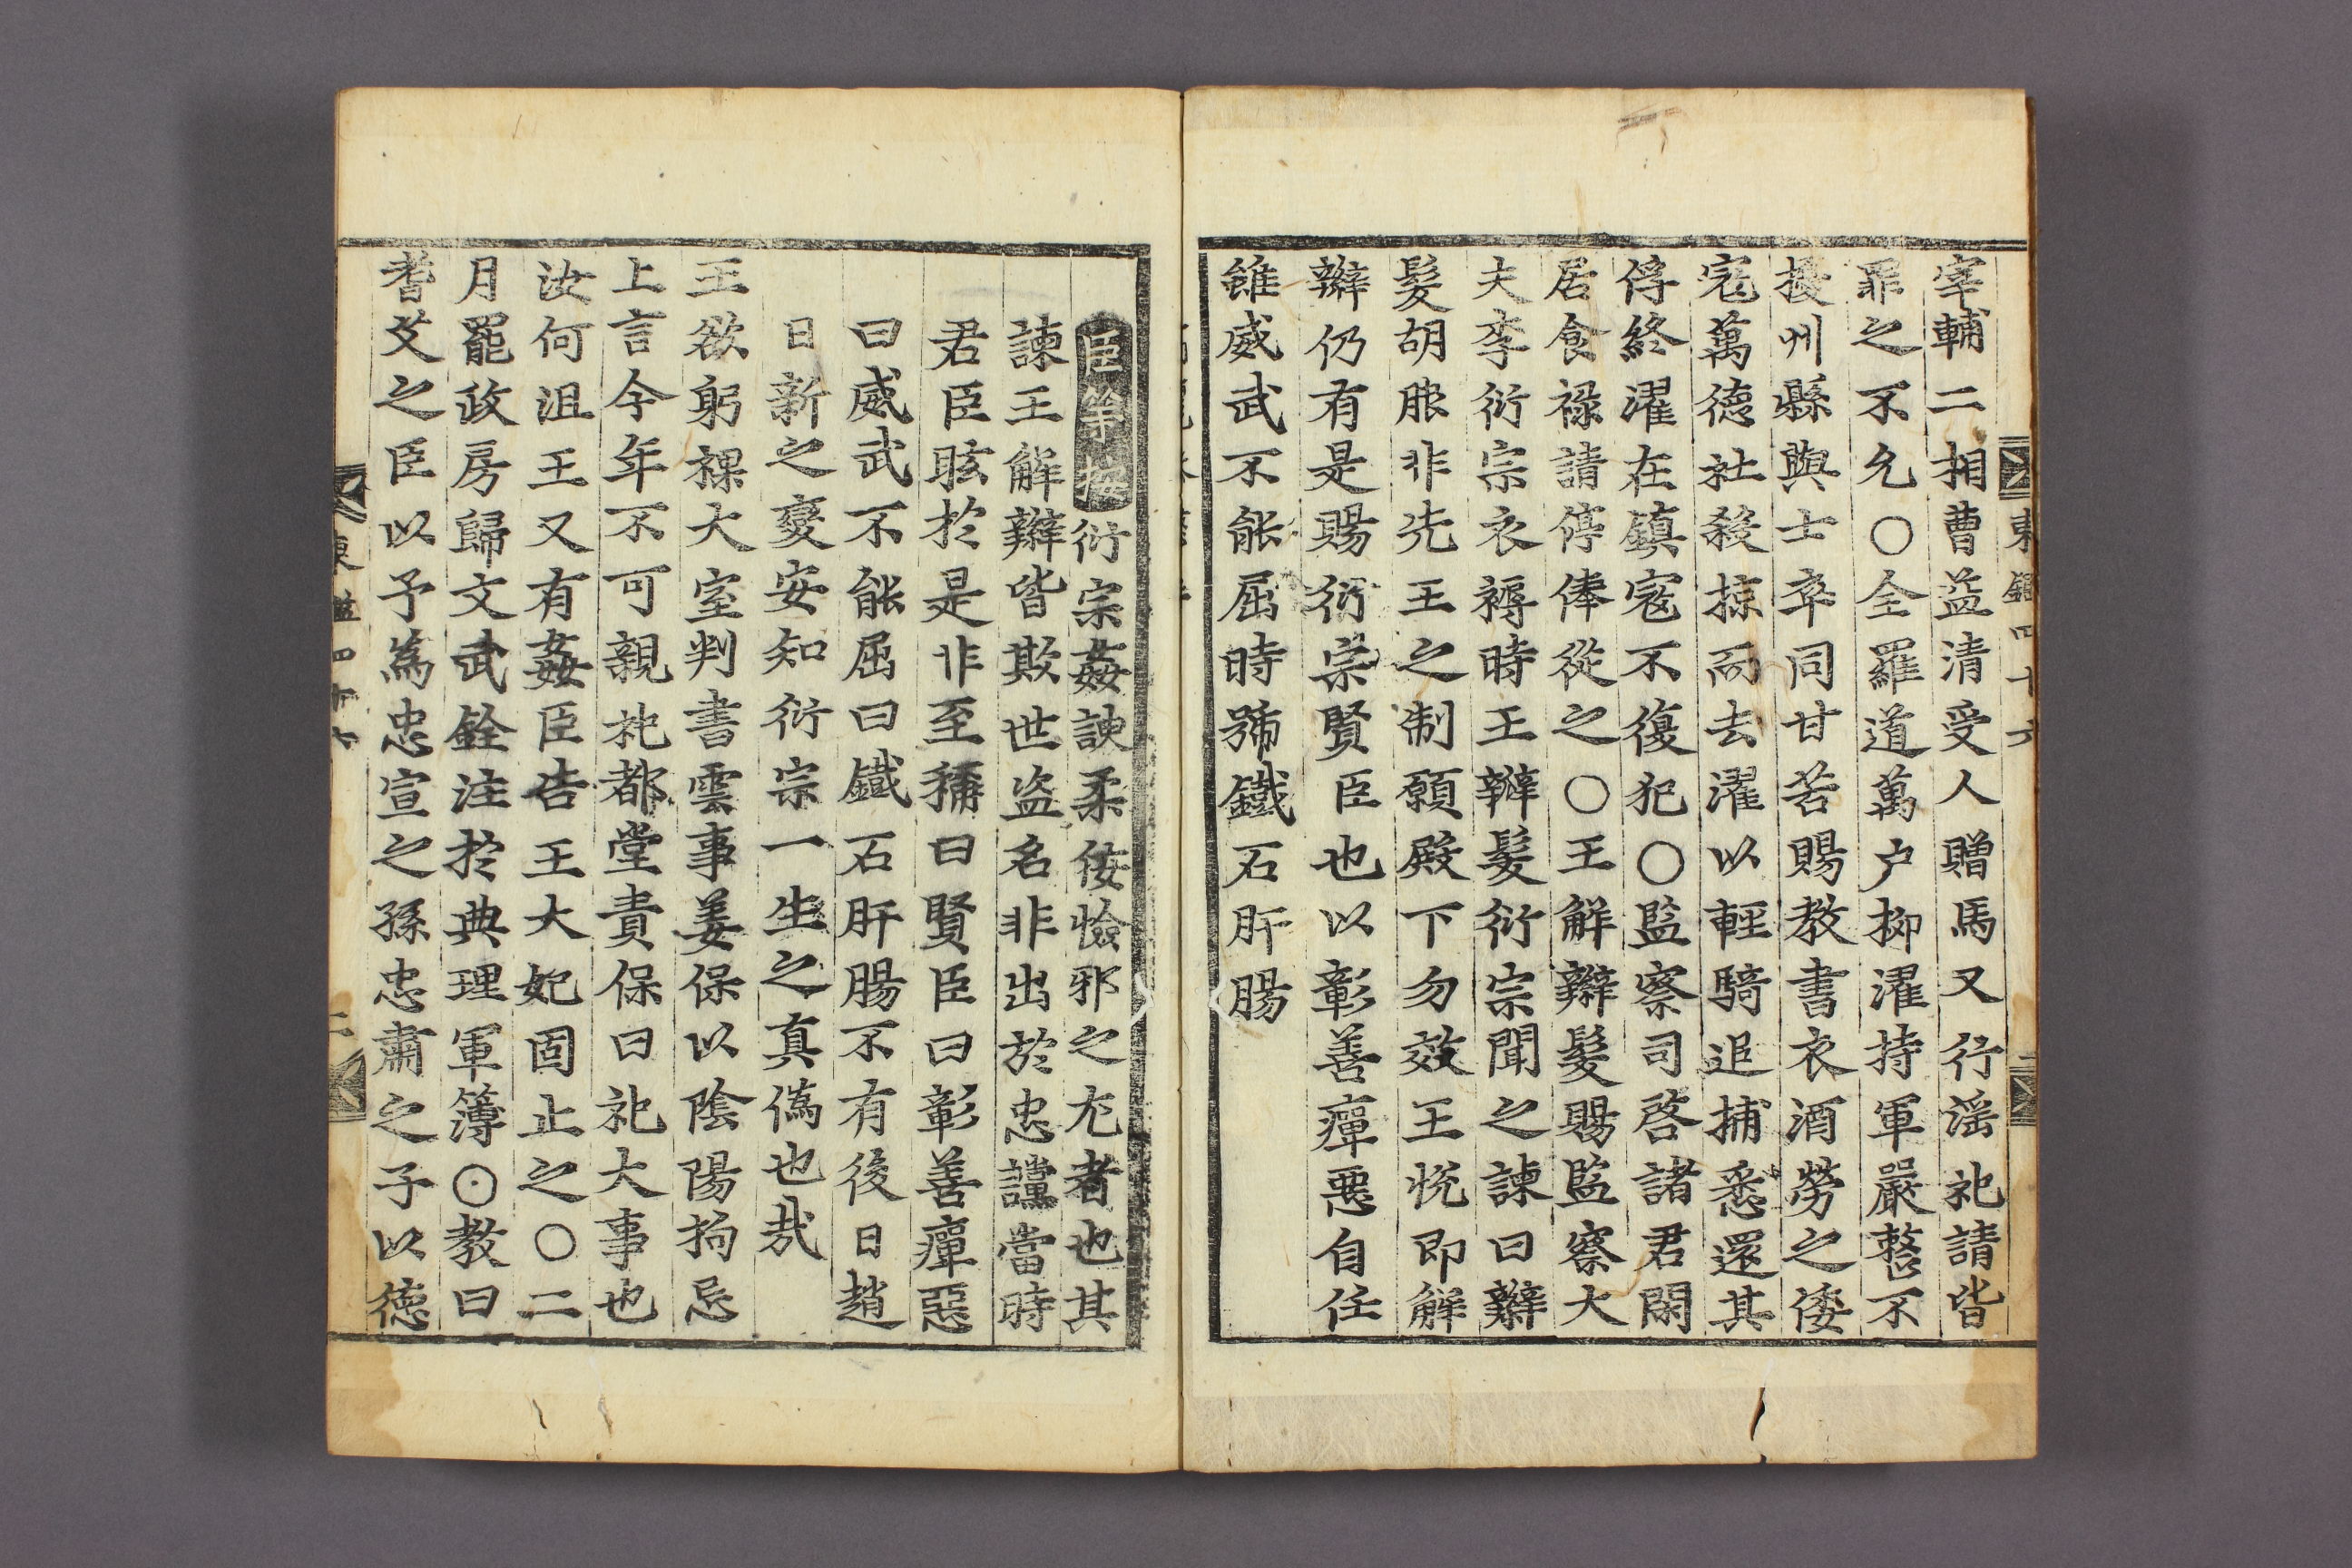 宰輔二相曹益清受人贈馬又行滛祀請皆
罪之不允○全羅道萬户柳濯持軍嚴整不
擾州縣與士卒同甘苦賜教書衣酒勞之倭
宼萬德社殺掠而去濯以輕騎追捕悉還其
俘終濯在鎮宼不復犯○監察司啓諸君閑
居食祿請停俸從之○王解辮髮賜監察大
夫李衍宗衣褥時王辮髮衍宗聞之諫曰辮
髮胡服非先王之制願殿下勿效王悅即解
辮仍有是賜衍宗賢臣也以彰善癉惡自任
雖威武不能屈時號鐵石肝腸
臣等按衍宗姦諛柔佞憸邪之尤者也其
諫王解辮皆欺世盜名非出於忠讜當時
君臣眩於是非至稱曰賢臣曰彰善癉惡
曰威武不能屈曰鐵石肝腸不有後日趙
日新之變安知衍宗一生之真僞也哉
王欲躬祼大室判書雲事姜保以陰陽拘忌
上言今年不可親祀都堂責保曰祀大事也
汝何沮王又有姦臣告王大妃固止之○二
月罷政房歸文武銓注於典理軍簿○教曰
耆艾之臣以予爲忠宣之孫忠肅之子以德
東鑑四十六
二
東鑑四十六
二